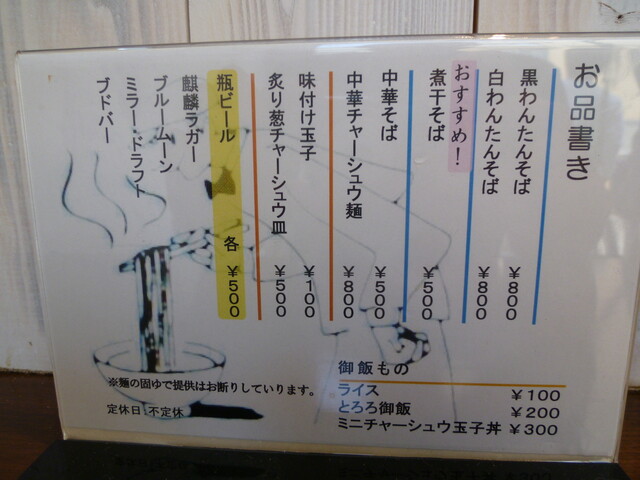 お品書き
黒わんたんそば ￥800
白わんたんそば ￥800
おすすめ！
煮干そば ￥500
中華そば ￥500
中華チャーシュウ麺 ￥800
味付け玉子 ￥100
炙り葱チャーシュウ皿 ￥500
瓶ビール 各 ￥500
麒麟ラガー
ブルームーン
ミラー・ドラフト
ブドバー
御飯もの
ライス ￥100
とろろ御飯 ￥200
ミニチャーシュウ玉子丼 ￥300
※麺の固ゆで提供はお断りしています。
定休日 不定休